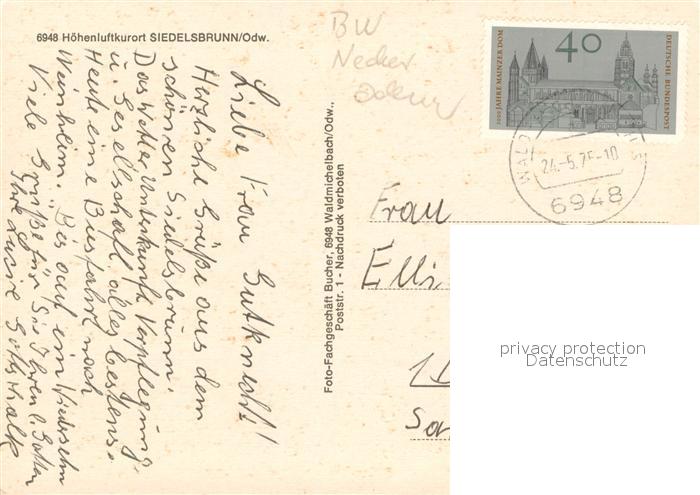 6948 Höhenluftkurort SIEDELSBRUNN/Odw.
Liebe Frau Gutknecht!
Herzliche Grüße aus dem
schönen Siedelsbrunn.
Das Wetter, Unterkunft, Verpflegung
u. Gesellschaft alles bestens.
Heute eine Busfahrt nach
Weinheim. "Bis auf ein Wiedersehn
Viele Grüße für Sie Ihren l. Gatten
Ihre Luzie Gottschalk
Foto-Fachgeschäft Bucher, 6948 Waldmichelbach/Odw.,
Poststr. 1 - Nachdruck verboten
BW
Necker
40
1000 JAHRE MAINZER DOM
DEUTSCHE BUNDESPOST
WALD
24.-5.75-10
6948
Frau
Elli
1
San
privacy protection
Datenschutz